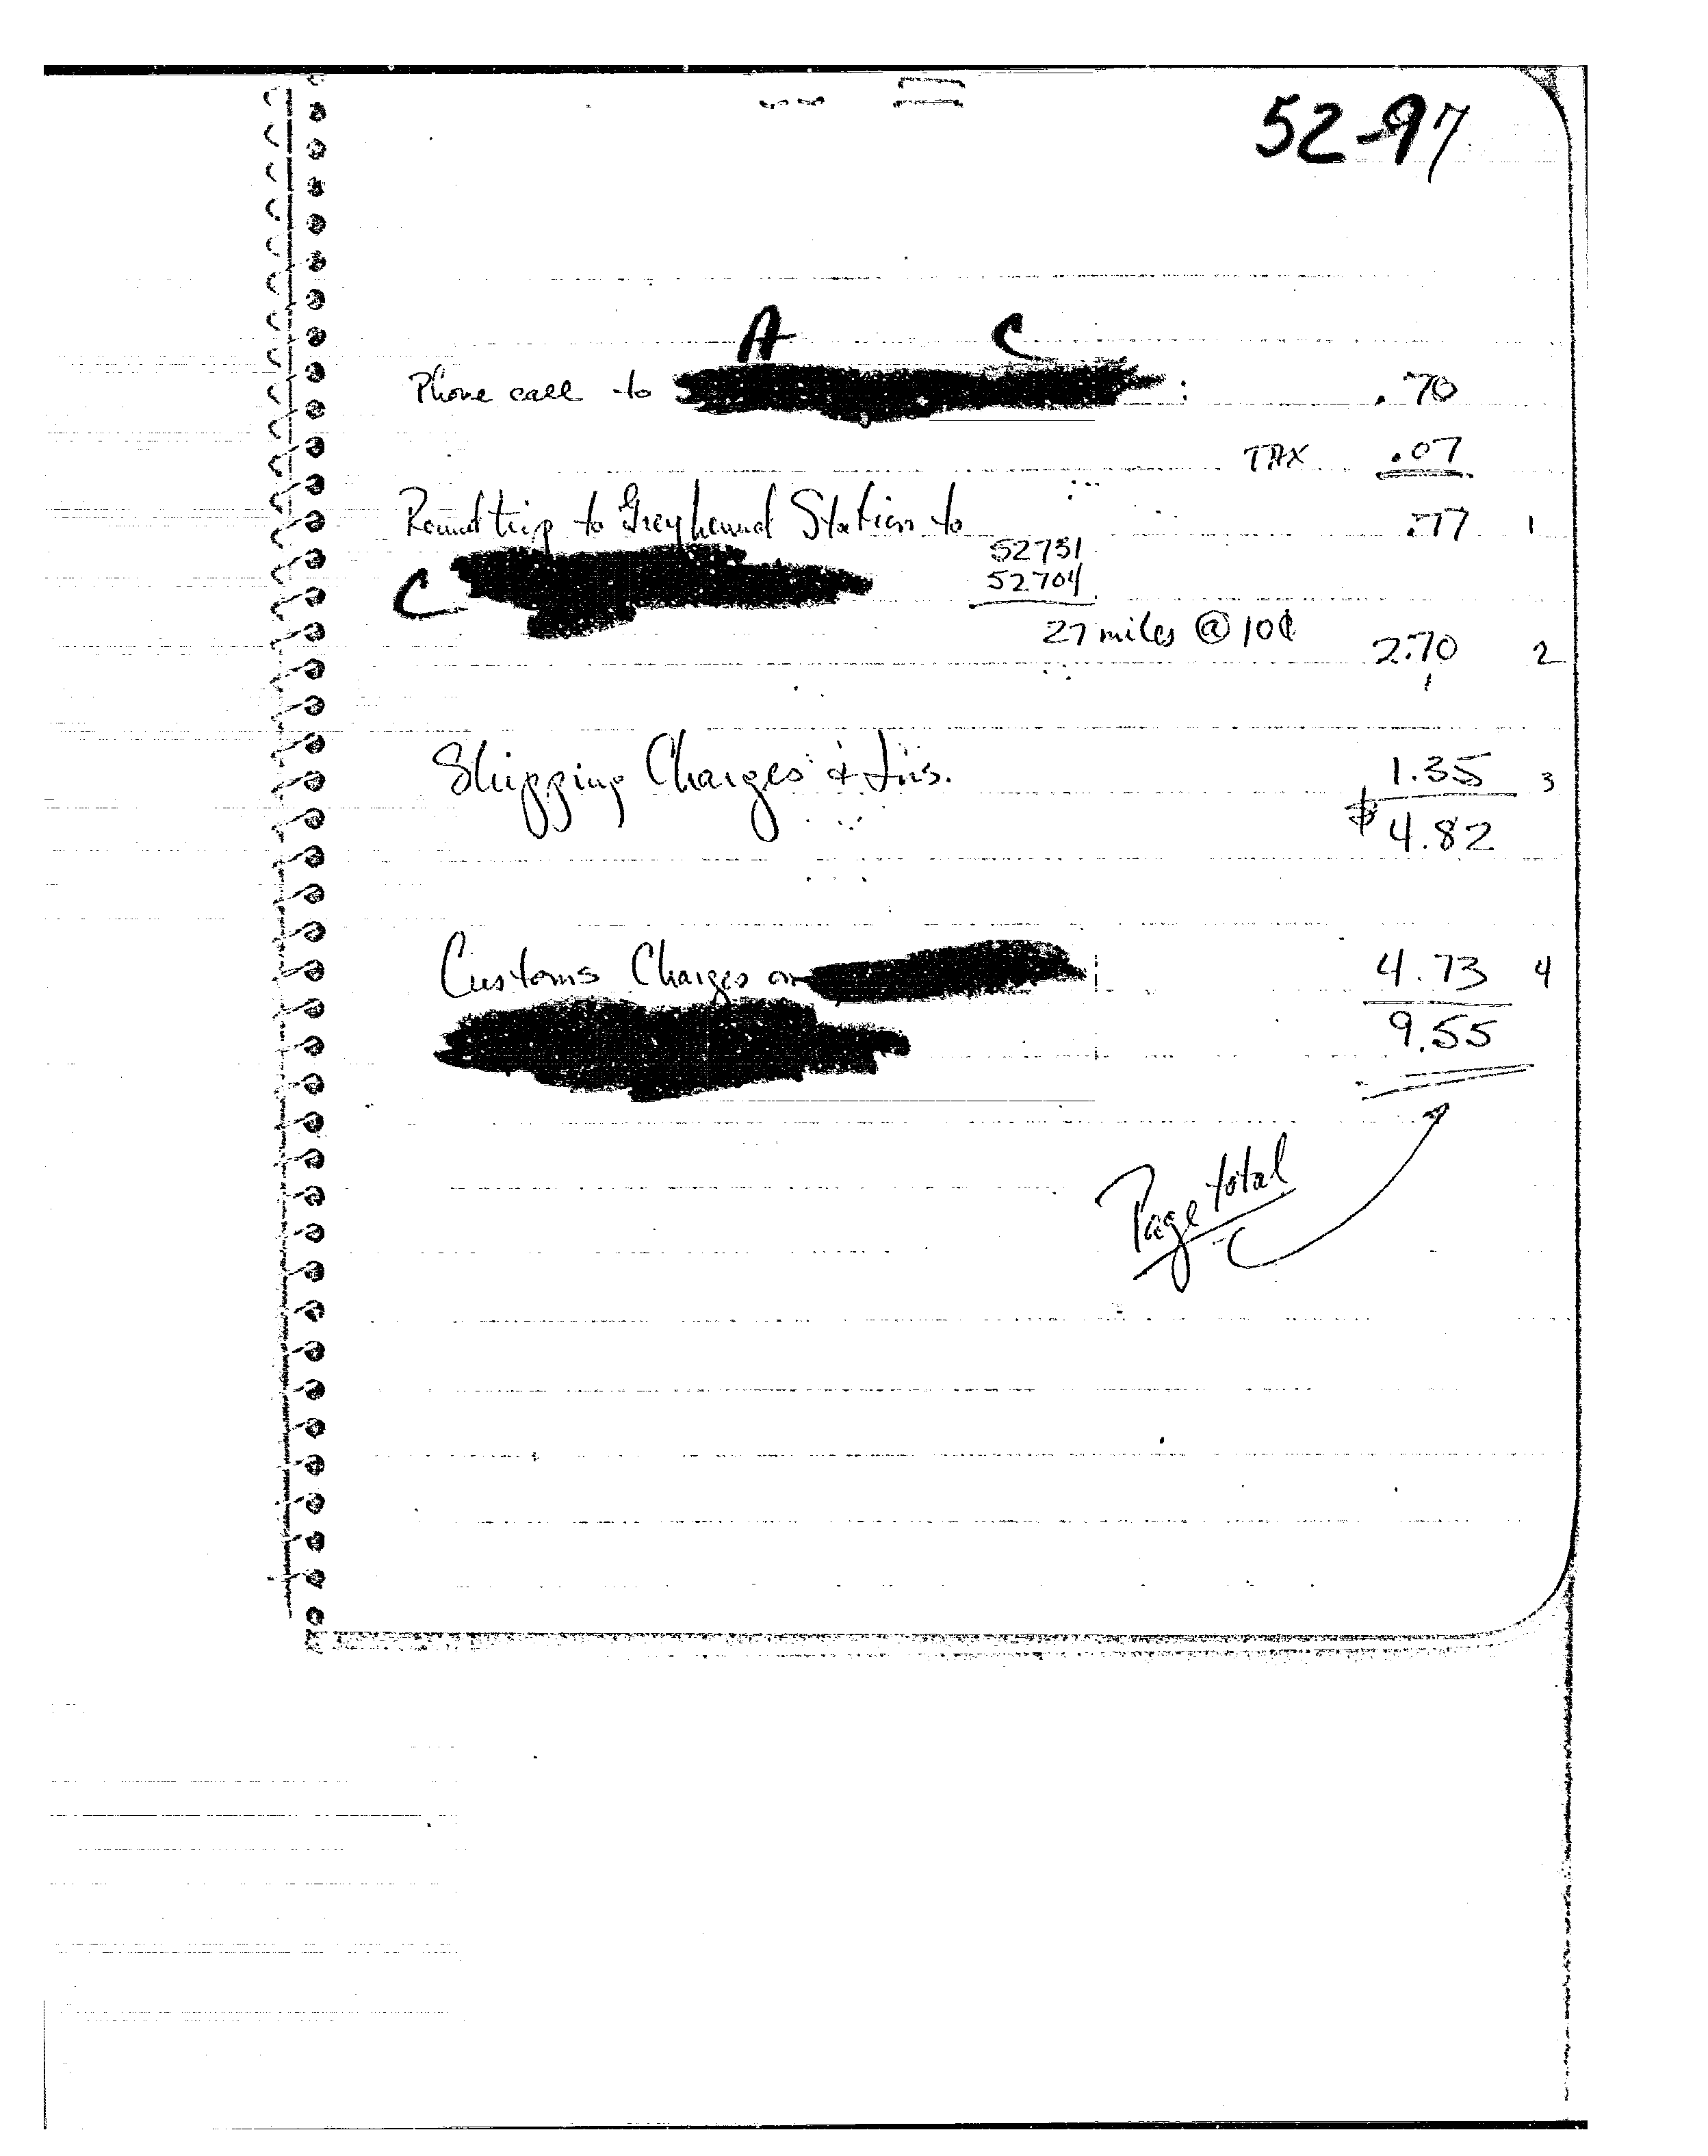 52-97
A C
Phone call to : .70
TAX .07
.77 1
Roundtrip to Greyhound Station to
C
52731
52704
27 miles @ 10¢ 2.70 2
Shipping Charges & Ins. 1.35 3
$4.82
Customs Charges on 4.73 4
9.55
Page total